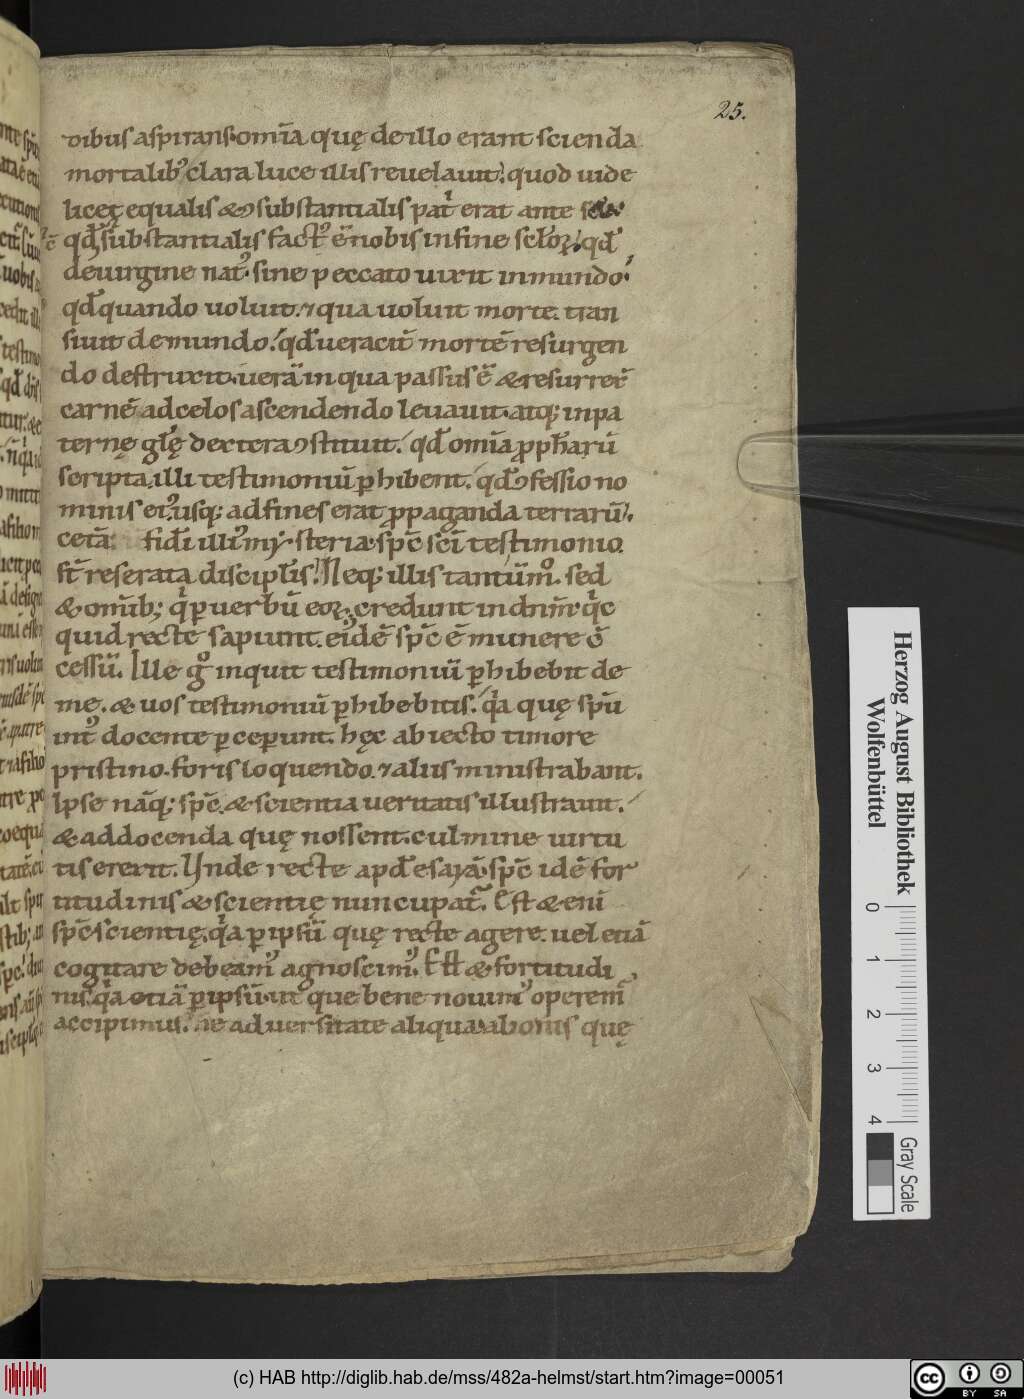 25.
dibus aspirans. om̄ia quę de illo erant scienda
mortalib᷒ clara luce illis reuelauit. quod uide
licet ęqualis & ꝯsubstantialis patˈ erat ante
qđ ꝯsubstantialis fact᷒ ē nobis in fine sc̄loꝝ. qđ
de uirgine nat᷒. sine peccato uixit in mundo.
qđ quando uoluit. ⁊ qua uoluit morte. tran
siuit de mundo. qđ ueracit̄ mortē resurgen
do destruxit. uerā in qua passus ē & resurrex̄
carnē ad celos ascendendo leuauit. atq; in pa
ternę gl̄ę dextera ꝯstituit. qđ om̄ia ꝓph̄arū
scripta, illi testimoniū ꝑhibent. qđ ꝯfessio no
minis ei᷒. usq; ad fines erat ꝓpaganda terrarū.
cet̄a fidi illi᷒ mysteria. spc̄ sc̄i testimonio
st̄ reserata discipl̄is. Neq; illis tantūm̊. sed
& om̄ib; q̇ ꝑ uerbū eoꝝ credunt in dn̄m. q̇c
quid recte sapiunt. ei᷒dē spc̄ ē munere ꝯ
cessū. Ille g̊ inquit testimoniū ꝑhibebit de
me. & uos testimoniū ꝑhibebitis. q̇a quę spū
int᷒ docente ꝑceperunt. hęc abiecto timore
pristino. foris loquendo ⁊ aliis ministrabant.
Ipse nāq; spc̄. & scientia ueritatis illustrauit.
& ad docenda quę nossent. culmine uirtu
tis erexit. Unde recte apđ esayā. spc̄ idē for
titudinis & scientię nuncupat̄. Est & eni
spc̄ scientię. q̇a ꝑ ipsū quę recte agere. uel etiā
cogitare debeam᷒ agnoscim᷒. Est & fortitudi
nis. q̇a etiā ꝑ ipsū. ut que bene nouim᷒ operem̄
accipimus. ne aduersitate aliqua a bonis quę
Herzog August Bibliothek
Wolfenbüttel
0 1 2 3 4
Gray Scale
(c) HAB http://diglib.hab.de/mss/482a-helmst/start.htm?image=00051
cc BY SA